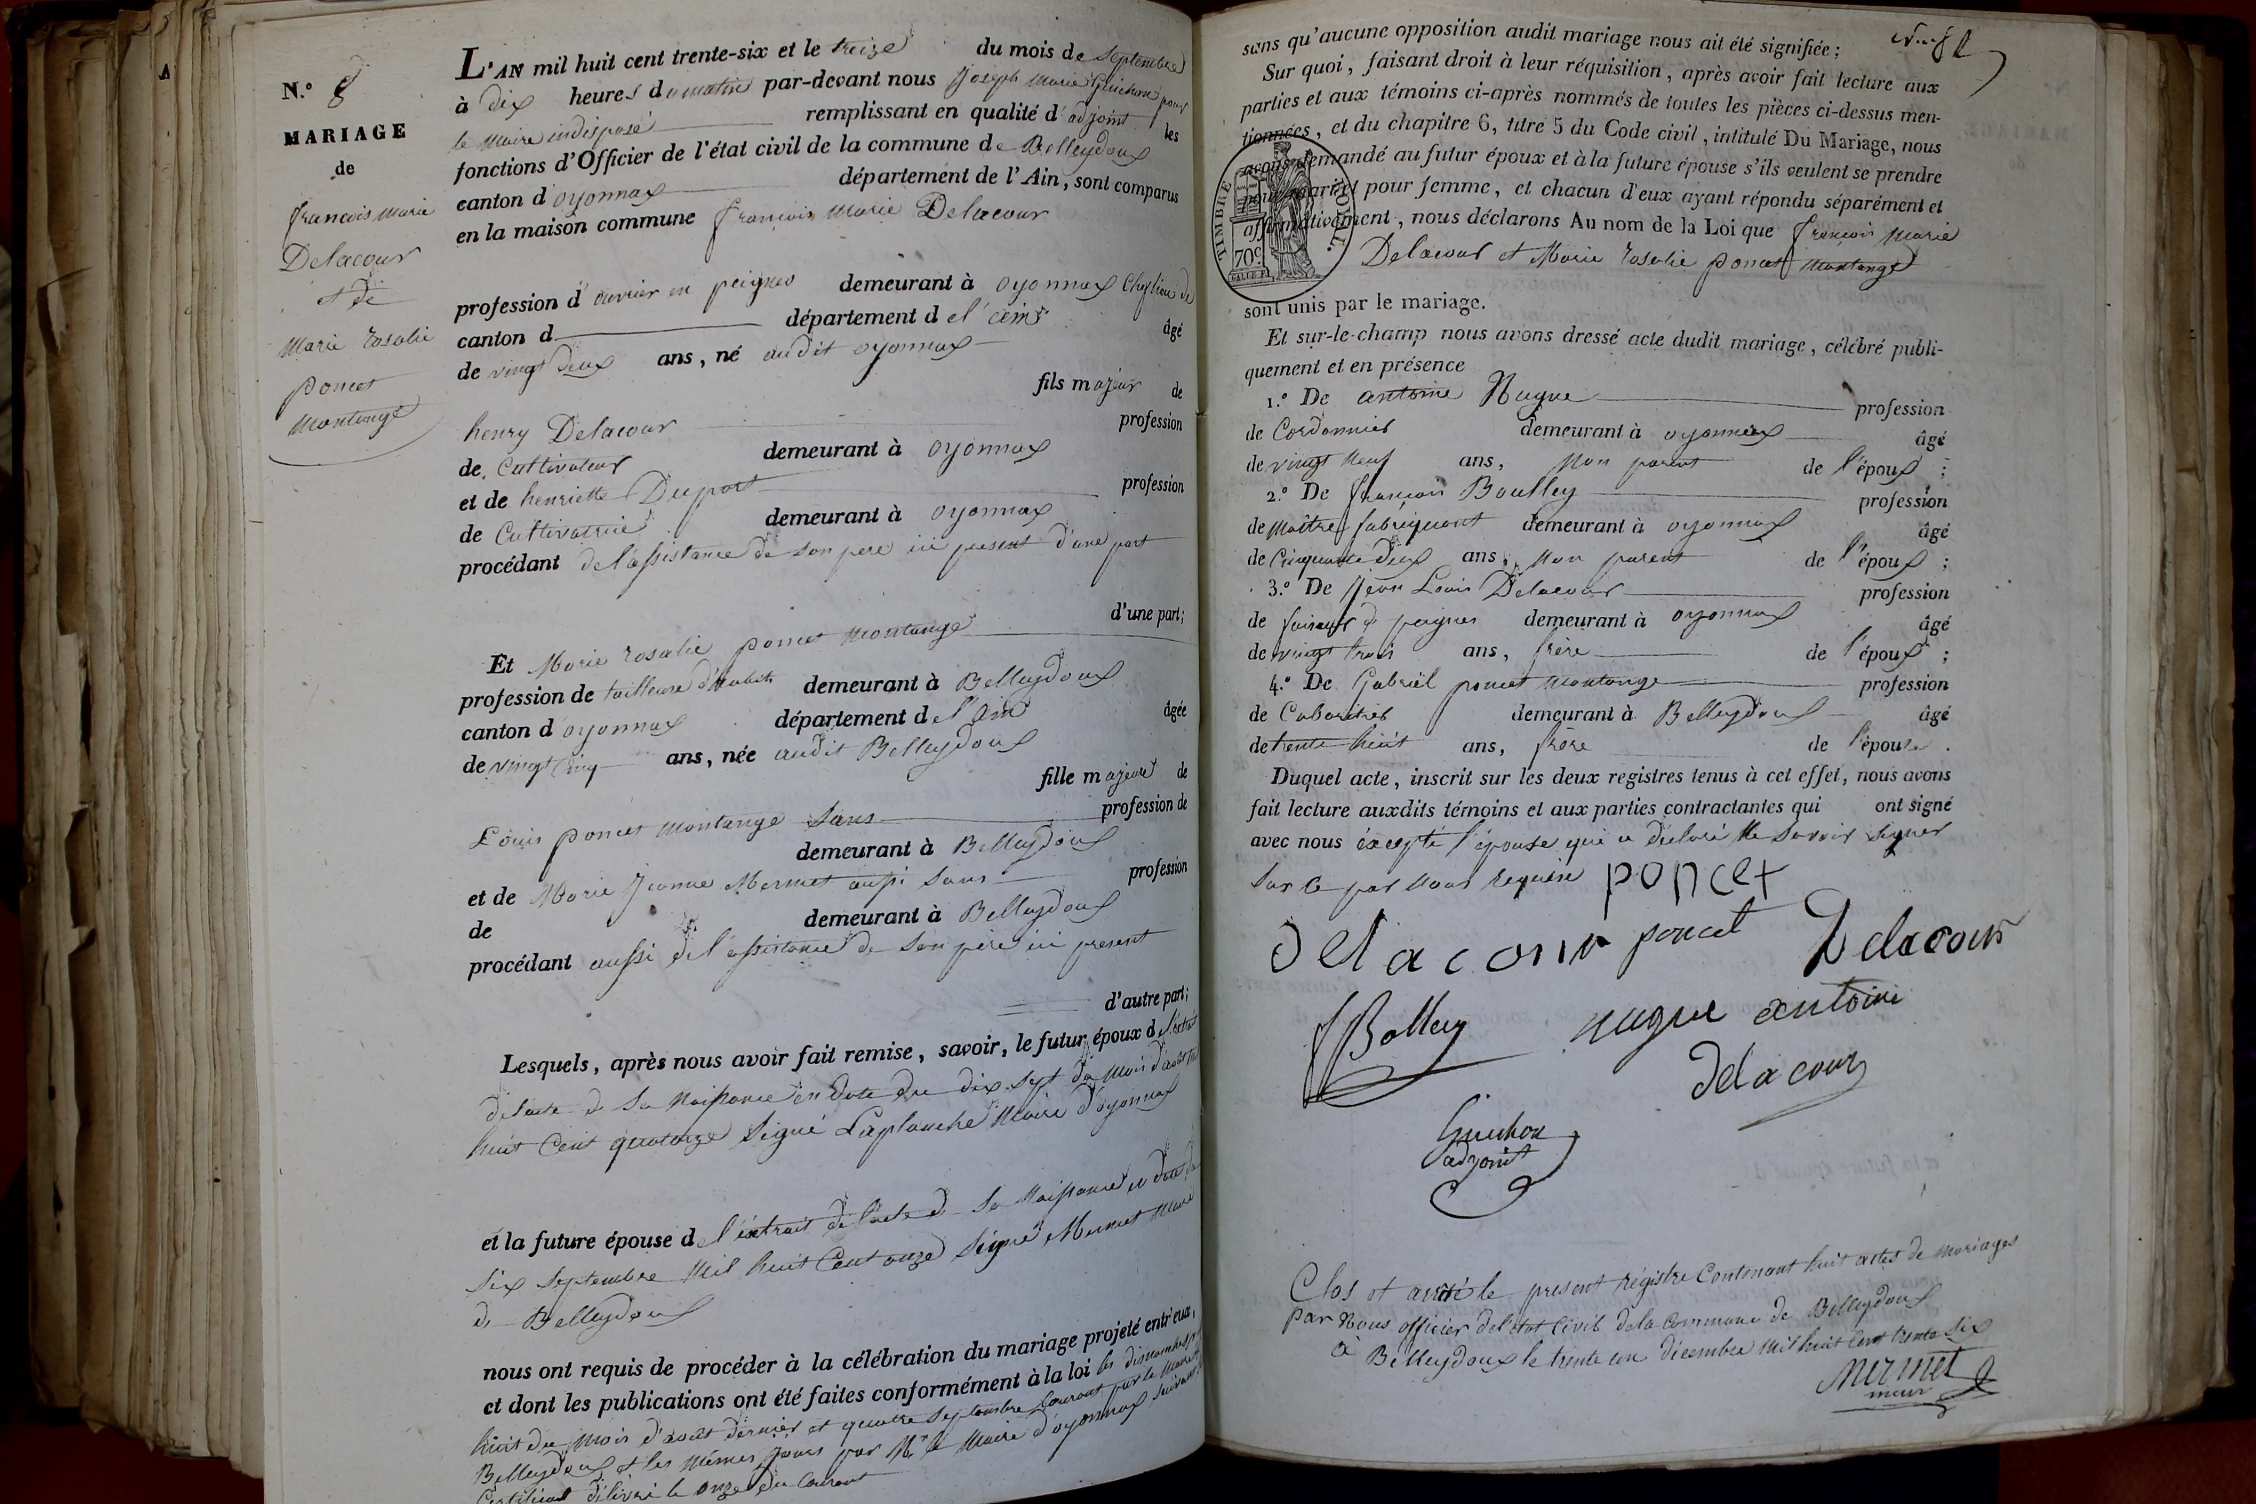 N.º 8
MARIAGE
de
francois Marie
Delacour
et de
Marie rosalie
poncet
Montange
L'AN mil huit cent trente-six et le treize du mois de septembre
à dix heures du matin par-devant nous Joseph Marie Guichon pour
le Maire indisposé remplissant en qualité d'adjoint les
fonctions d'Officier de l'état civil de la commune de Belleydoux
canton d'oyonnax département de l'Ain, sont comparus
en la maison commune françois Marie Delacour
profession d'ouvrier en peignes demeurant à oyonnax Cheflieu de
canton d département de l'ain âgé
de vingt deux ans, né audit oyonnax
fils majeur de
henry Delacour profession
de Cultivateur demeurant à oyonnax
et de henriette Duport profession
de Cultivatrice demeurant à oyonnax
procédant de l'assistance de son pere ici present d'une part
d'une part;
Et Marie rosalie poncet Montange
profession de tailleuse d'habits demeurant à Belleydoux
canton d'oyonnax département de l'ain âgée
de vingt cinq ans, née audit Belleydoux
fille majeure de
Louis poncet Montange sans profession de
demeurant à Belleydoux
et de Marie Jeanne Mermet aussi sans profession
de demeurant à Belleydoux
procédant aussi de l'assistance de son père ici present
d'autre part;
Lesquels, après nous avoir fait remise, savoir, le futur époux de l'extrait
de l'acte de sa Naissance en date du dix sept du mois d'août mil
huit Cent quatorze signé Laplanche Maire d'oyonnax
et la future épouse de l'extrait de l'acte de sa Naissance en date du
six septembre mil huit Cent onze signé Mermet Maire
de Belleydoux
nous ont requis de procéder à la célébration du mariage projeté entr'eux,
et dont les publications ont été faites conformément à la loi les dimanches
huit du mois d'août dernier et quatre septembre Courant par le Maire de
Belleydoux et les mêmes jours par Mr le Maire d'oyonnax suivant
Certificat délivré le onze du Courant
sans qu'aucune opposition audit mariage nous ait été signifiée;
Sur quoi, faisant droit à leur réquisition, après avoir fait lecture aux
parties et aux témoins ci-après nommés de toutes les pièces ci-dessus men-
tionnées, et du chapitre 6, titre 5 du Code civil, intitulé Du Mariage, nous
avons demandé au futur époux et à la future épouse s'ils veulent se prendre
pour mari et pour femme, et chacun d'eux ayant répondu séparément et
affirmativement, nous déclarons Au nom de la Loi que françois Marie
Delacour et Marie rosalie poncet Montange
TIMBRE ROYAL
70c
sont unis par le mariage.
Et sur-le-champ nous avons dressé acte dudit mariage, célébré publi-
quement et en présence
1.º De antoine Nugue profession
de Cordonnier demeurant à oyonnax âgé
de vingt neuf ans, Non parent de l'époux;
2.º De françois Bolley profession
de Maître fabriquant demeurant à oyonnax âgé
de Cinquante deux ans, Non parent de l'époux;
3.º De Jean Louis Delacour profession
de faiseur de peignes demeurant à oyonnax âgé
de vingt trois ans, frère de l'époux;
4.º De Gabriel poncet Montange profession
de Cabaretier demeurant à Belleydoux âgé
de trente huit ans, frère de l'épouse.
Duquel acte, inscrit sur les deux registres tenus à cet effet, nous avons
fait lecture auxdits témoins et aux parties contractantes qui ont signé
avec nous excepté l'épouse qui a déclaré Ne savoir signer
sur ce par Nous requise poncet
delacour poncet Delacour
fBolley nugue antoine
delacour
Guichon
adjoint
Clos et arrêté le present régistre Contenant huit actes de Mariages
Par Nous officier de l'état Civil de la Commune de Belleydoux
à Belleydoux le trente un décembre mil huit Cent trente six
Mermet
maire